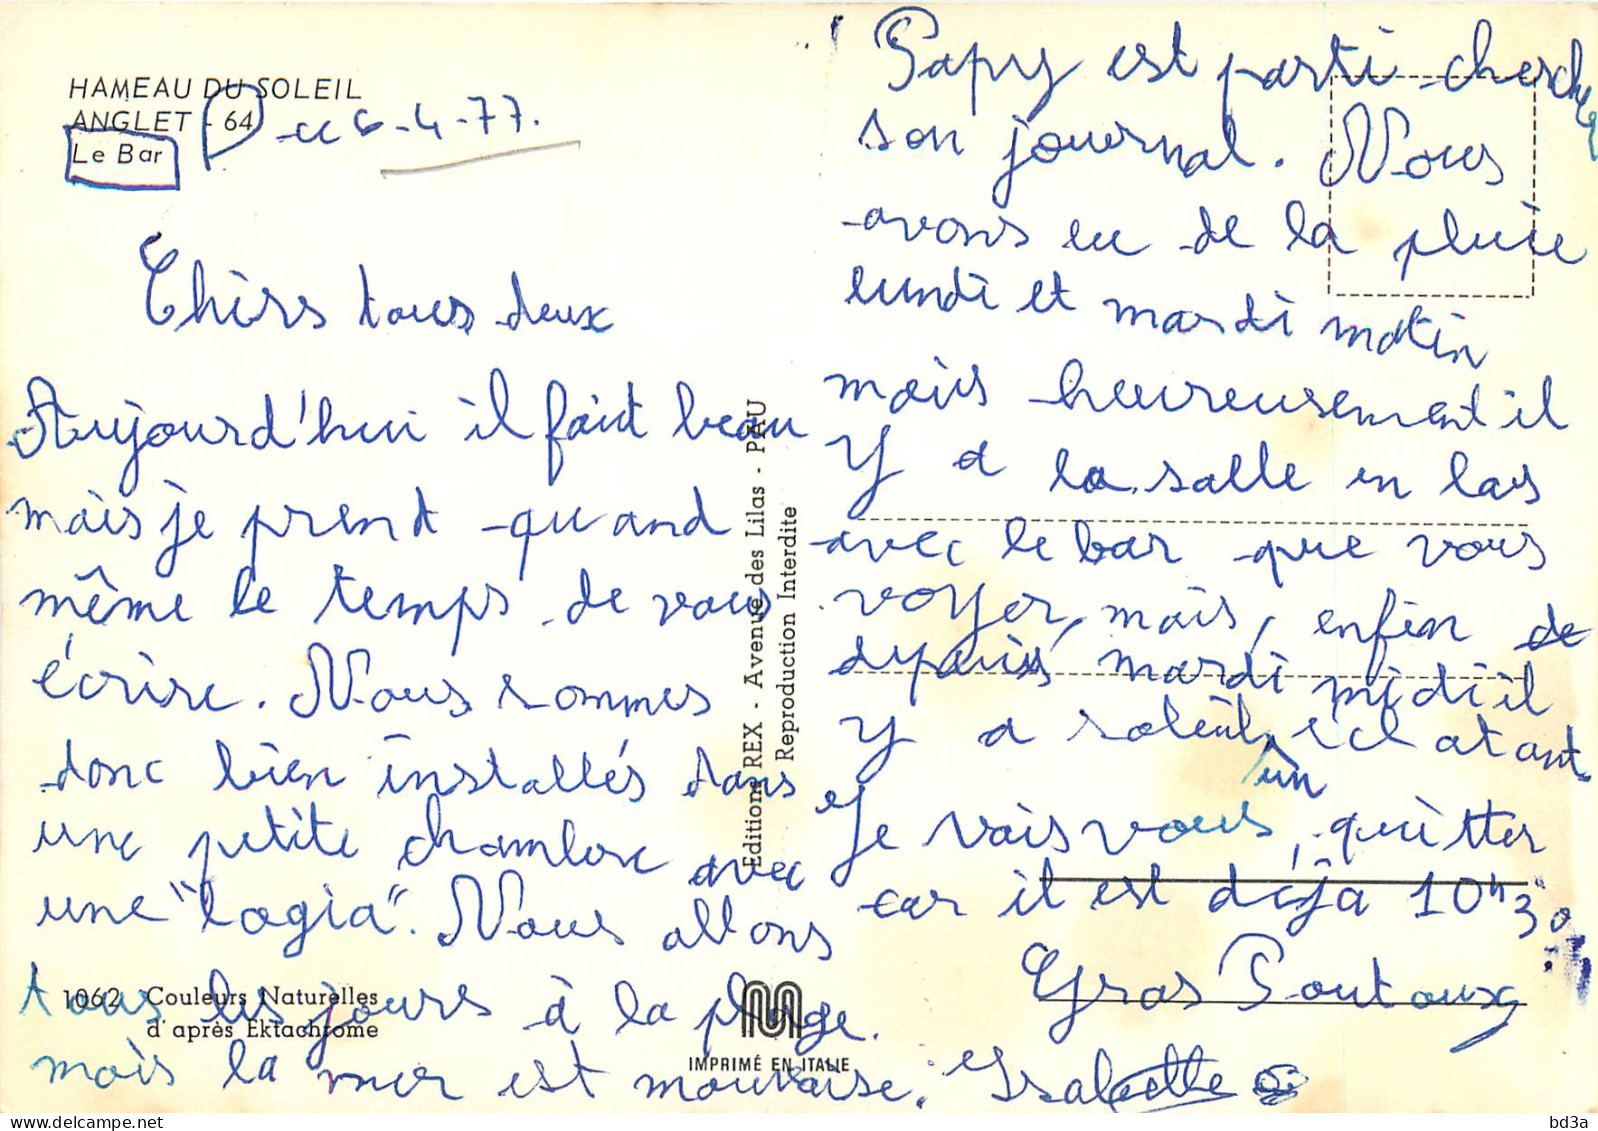 HAMEAU DU SOLEIL
ANGLET - 64
Le Bar
le 6-4-77.
Chers tous deux
Aujourd'hui il fait beau
mais je prend quand
même le temps de vous
écrire. Nous sommes
donc bien installés dans
une petite chambre avec
une "logia". Nous allons
tous les jours à la plage.
mais la mer est mauvaise.
1062 Couleurs Naturelles
d'après Ektachrome
Editions REX - Avenue des Lilas - PAU
Reproduction Interdite
IMPRIMÉ EN ITALIE
Papy est parti chercher
son journal. Nous
avons eu de la pluie
lundi et mardi matin
mais heureusement il
y a la salle en bas
avec le bar que vous
voyer, mais, enfin de
depuis mardi midi il
y a soleil éclatant
Je vais vous, quitter
un
car il est déjà 10h30
Gras Poutoux
Isabelle
bd3a